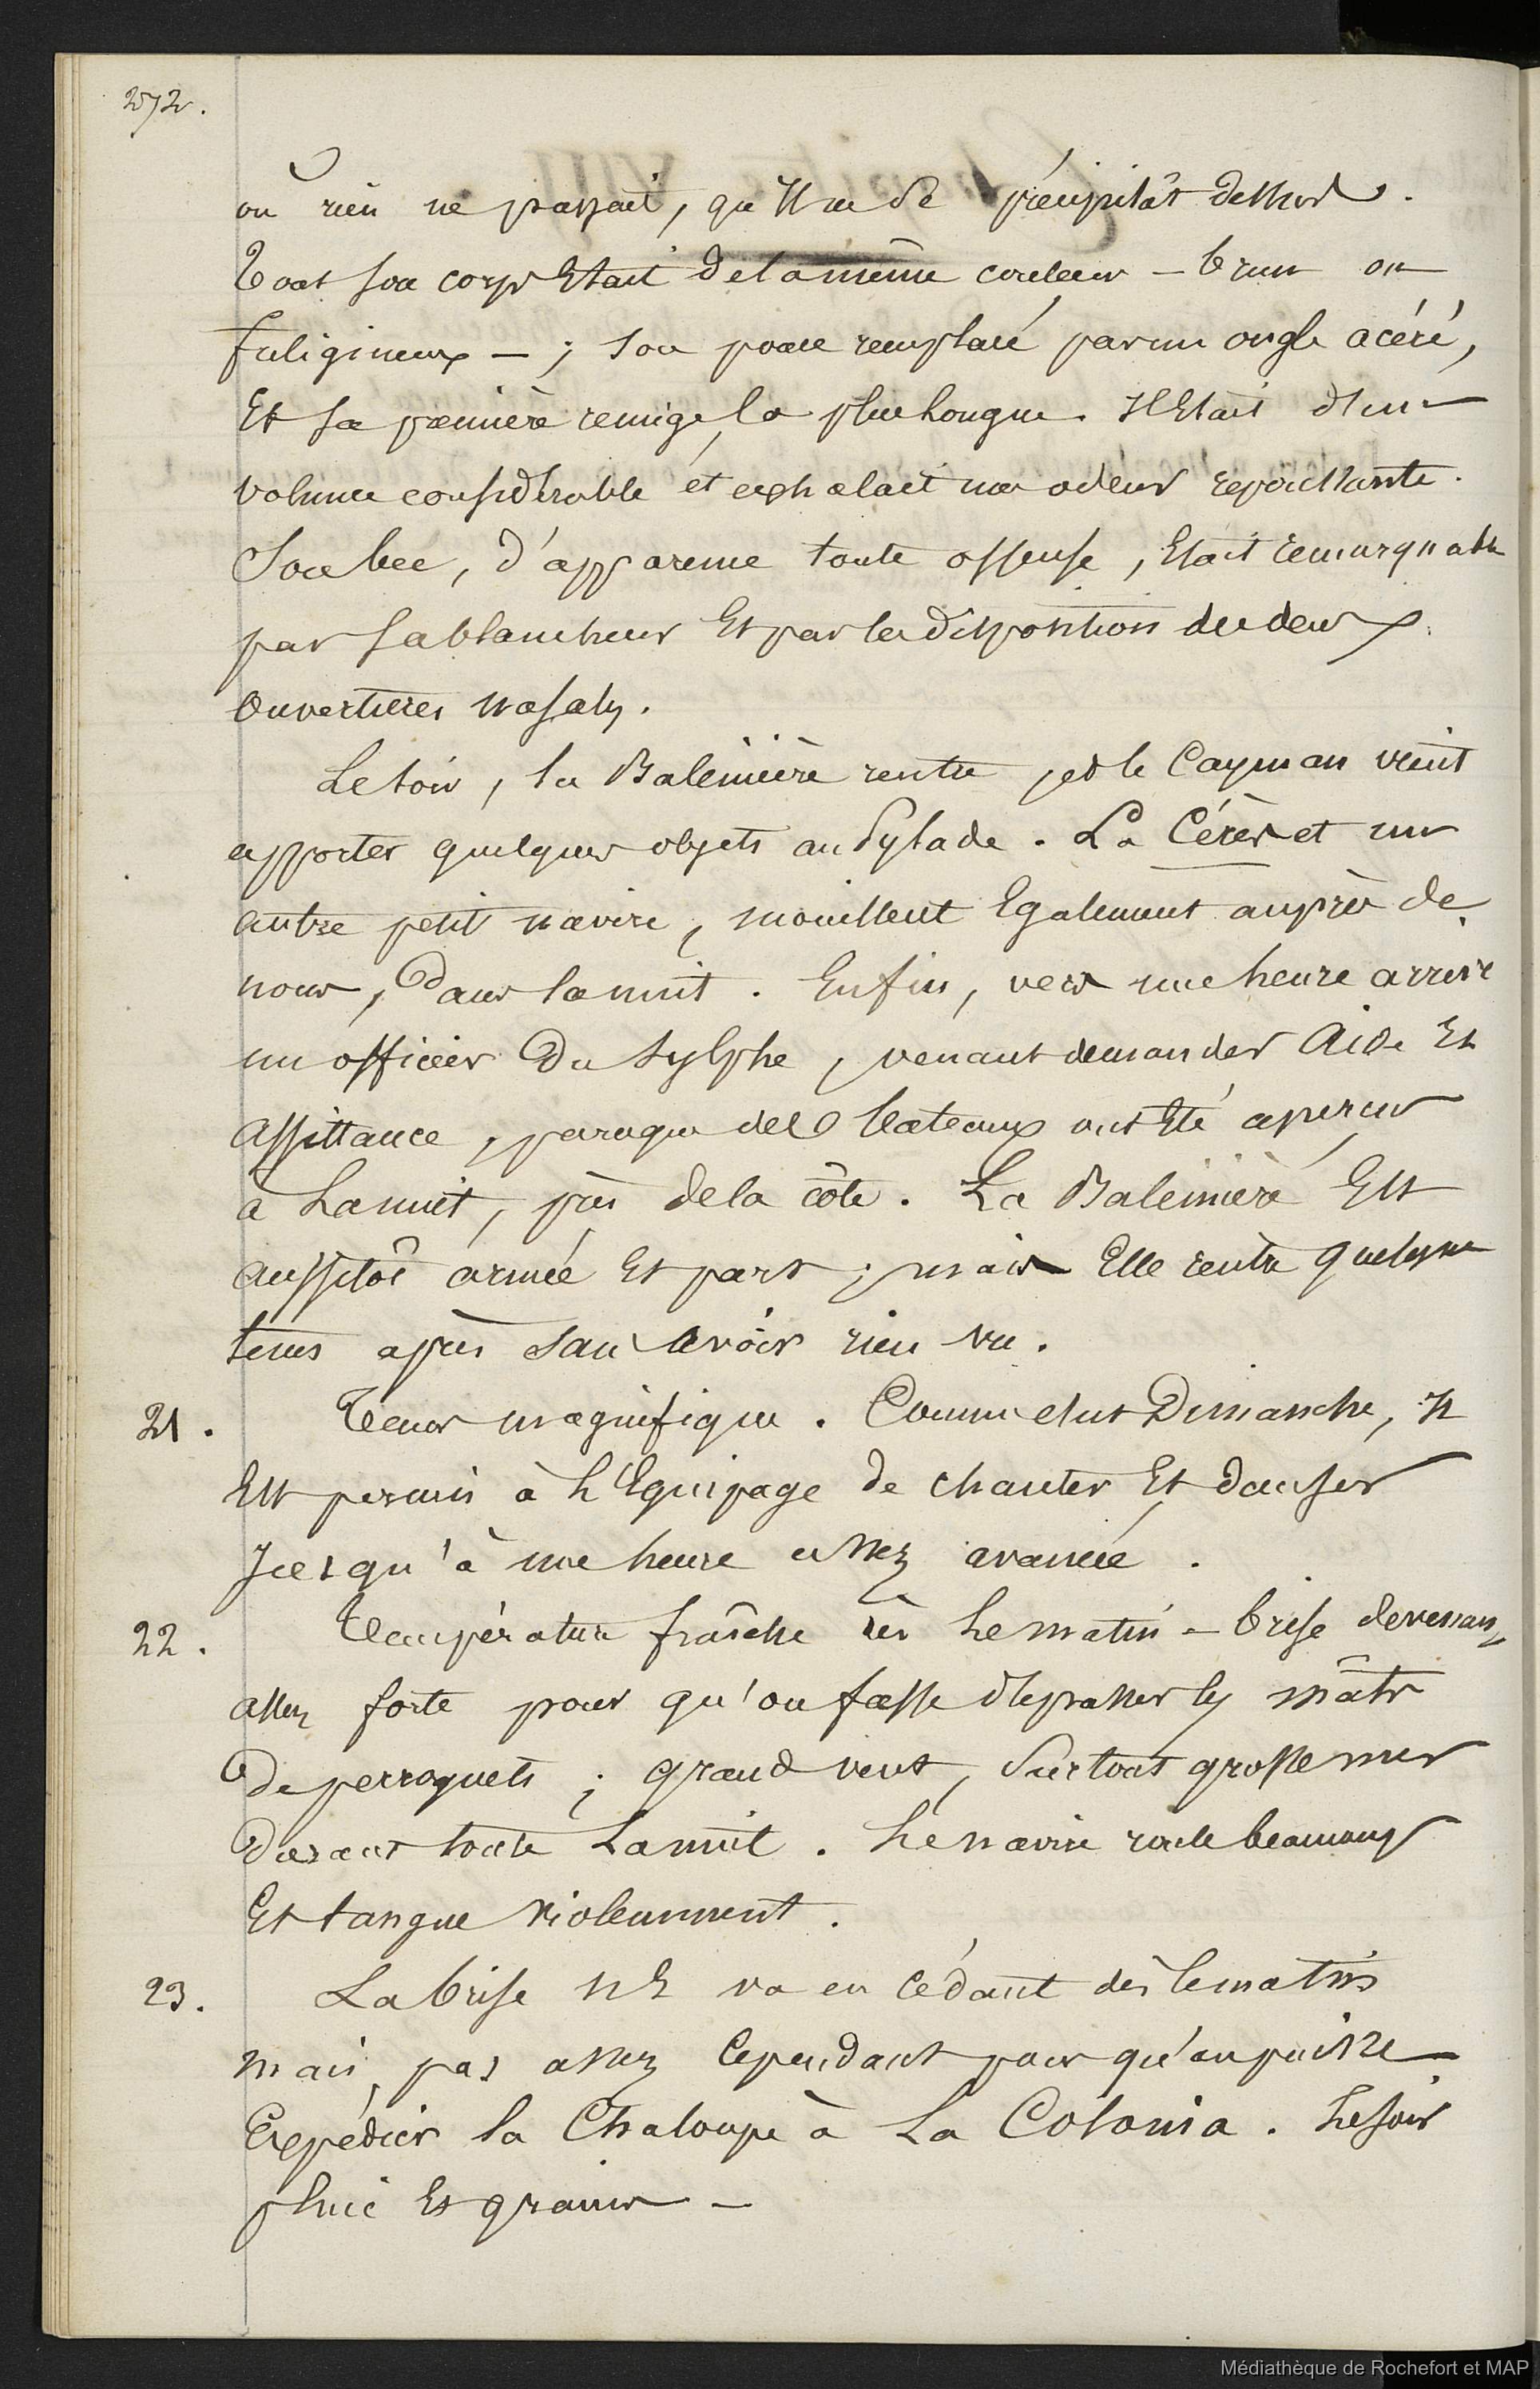 272.
où rien ne passait, qu'il ne se précipitât dessus.
Tout son corps Etait de la même couleur – brun ou
fuligineux – ; son pouce remplacé par un ongle acéré,
Et sa première remige la plus longue. Il Etait d'un
volume considérable et exhalait une odeur repoussante.
Son bec, d'apparence toute osseuse, Etait remarquable
par sa blancheur Et par la disposition des deux
Ouvertures nasales.
Le soir, la Baleinière rentre, et le Cayman vient
apporter quelques objets au Pylade. La Cérès et un
autre petit navire, mouillent Egalement auprès de
nous, Dans la nuit. Enfin, vers une heure arrive
un officier Du Sylphe, venant demander Aide Et
Assistance, parceque des bateaux ont Eté aperçus
à La nuit, près de la côte. La Baleinière Est
aussitôt armée Et part ; mais Elle rentre quelque
tems après sans avoir rien vu.
21. Tems magnifique. Comme c'est Dimanche, il
Est permis à L'Equipage de chanter Et danser
Jusqu'à une heure assez avancée.
22. Température fraîche dès Le matin – brise devenant
assez forte pour qu'on fasse dépasser les mâts
De perroquets ; grand vent, Surtout grosse mer
Durant toute La nuit. Le navire roule beaucoup
Et tangue violemment.
23. La brise NE va en cédant dès le matin
mais, pas assez Cependant pour qu'on puisse
Expédier la Chaloupe à La Colonia. Le soir
pluie Et grains –
Médiathèque de Rochefort et MAP